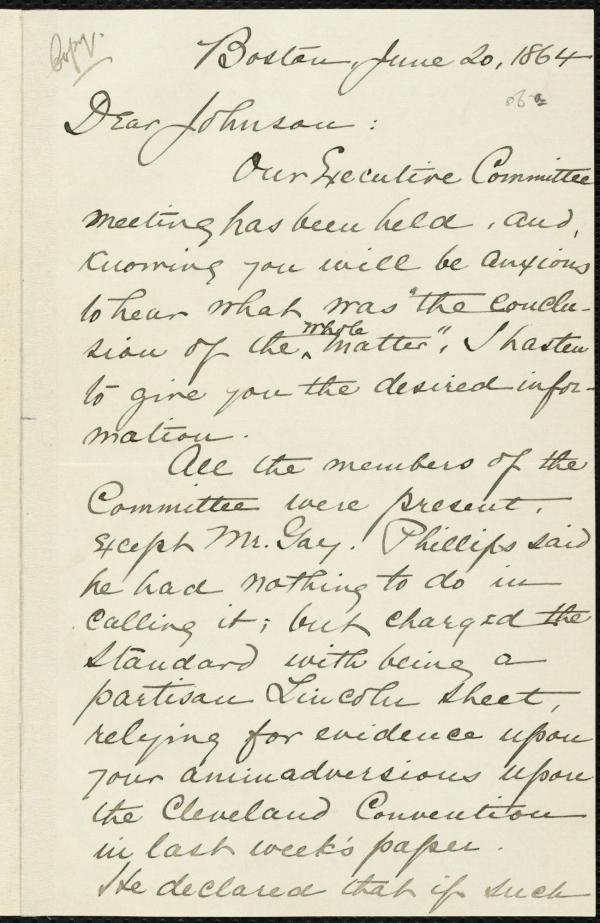 Copy.
Boston, June 20, 1864
Dear Johnson:
Our Executive Committee
meeting has been held, and,
knowing you will be anxious
to hear what was "the conclu-
sion of the whole matter", I hasten
to give you the desired infor-
mation.
All the members of the
Committee were present,
except Mr. Gay. Phillips said
he had nothing to do in
calling it; but charged the
Standard with being a
partisan Lincoln sheet,
relying for evidence upon
your animadversions upon
the Cleveland Convention
in last week's paper.
He declared that if such